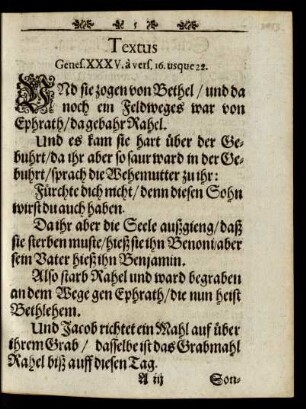 5
Textus
Genes. XXXV. à vers. 16. usque 22.
UNd sie zogen von Bethel / und da
noch ein Feldweges war von
Ephrath / da gebahr Rahel.
Und es kam sie hart über der Ge-
buhrt / da ihr aber so saur ward in der Ge-
buhrt / sprach die Wehemutter zu ihr:
Fürchte dich nicht / denn diesen Sohn
wirst du auch haben.
Da ihr aber die Seele außgieng / daß
sie sterben muste / hieß sie ihn Benoni / aber
sein Vater hieß ihn Benjamin.
Also starb Rahel und ward begraben
an dem Wege gen Ephrath / die nun heist
Bethlehem.
Und Jacob richtet ein Mahl auf über
ihrem Grab / dasselbe ist das Grabmahl
Rahel biß auff diesen Tag.
A iij Son-